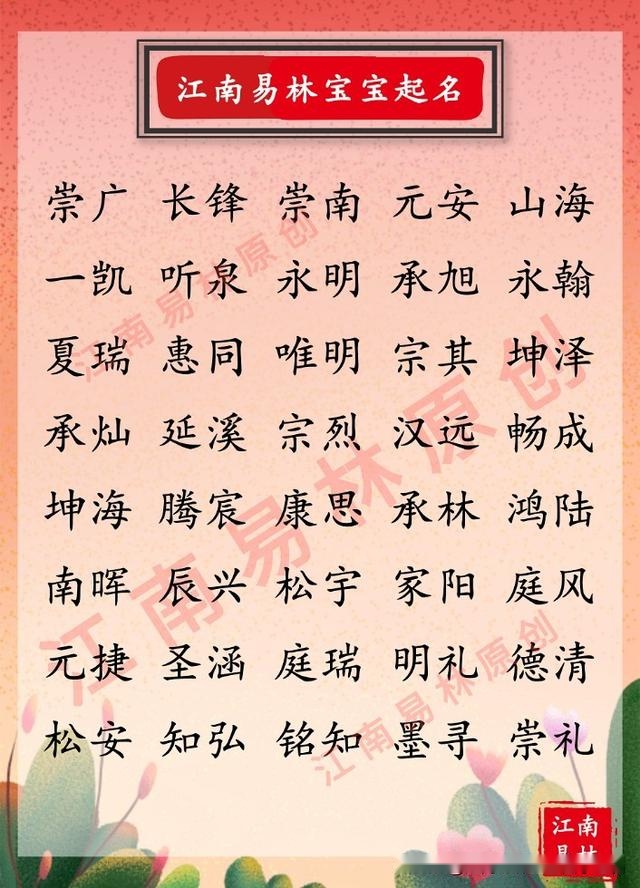 江南易林宝宝起名
崇广 长锋 崇南 元安 山海
一凯 听泉 永明 承旭 永翰
夏瑞 惠同 唯明 宗其 坤泽
承灿 延溪 宗烈 汉远 畅成
坤海 腾宸 康思 承林 鸿陆
南晖 辰兴 松宇 家阳 庭风
元捷 圣涵 庭瑞 明礼 德清
松安 知弘 铭知 墨寻 崇礼
江南易林原创
江南易林原创
江南易林原创
江南
易林